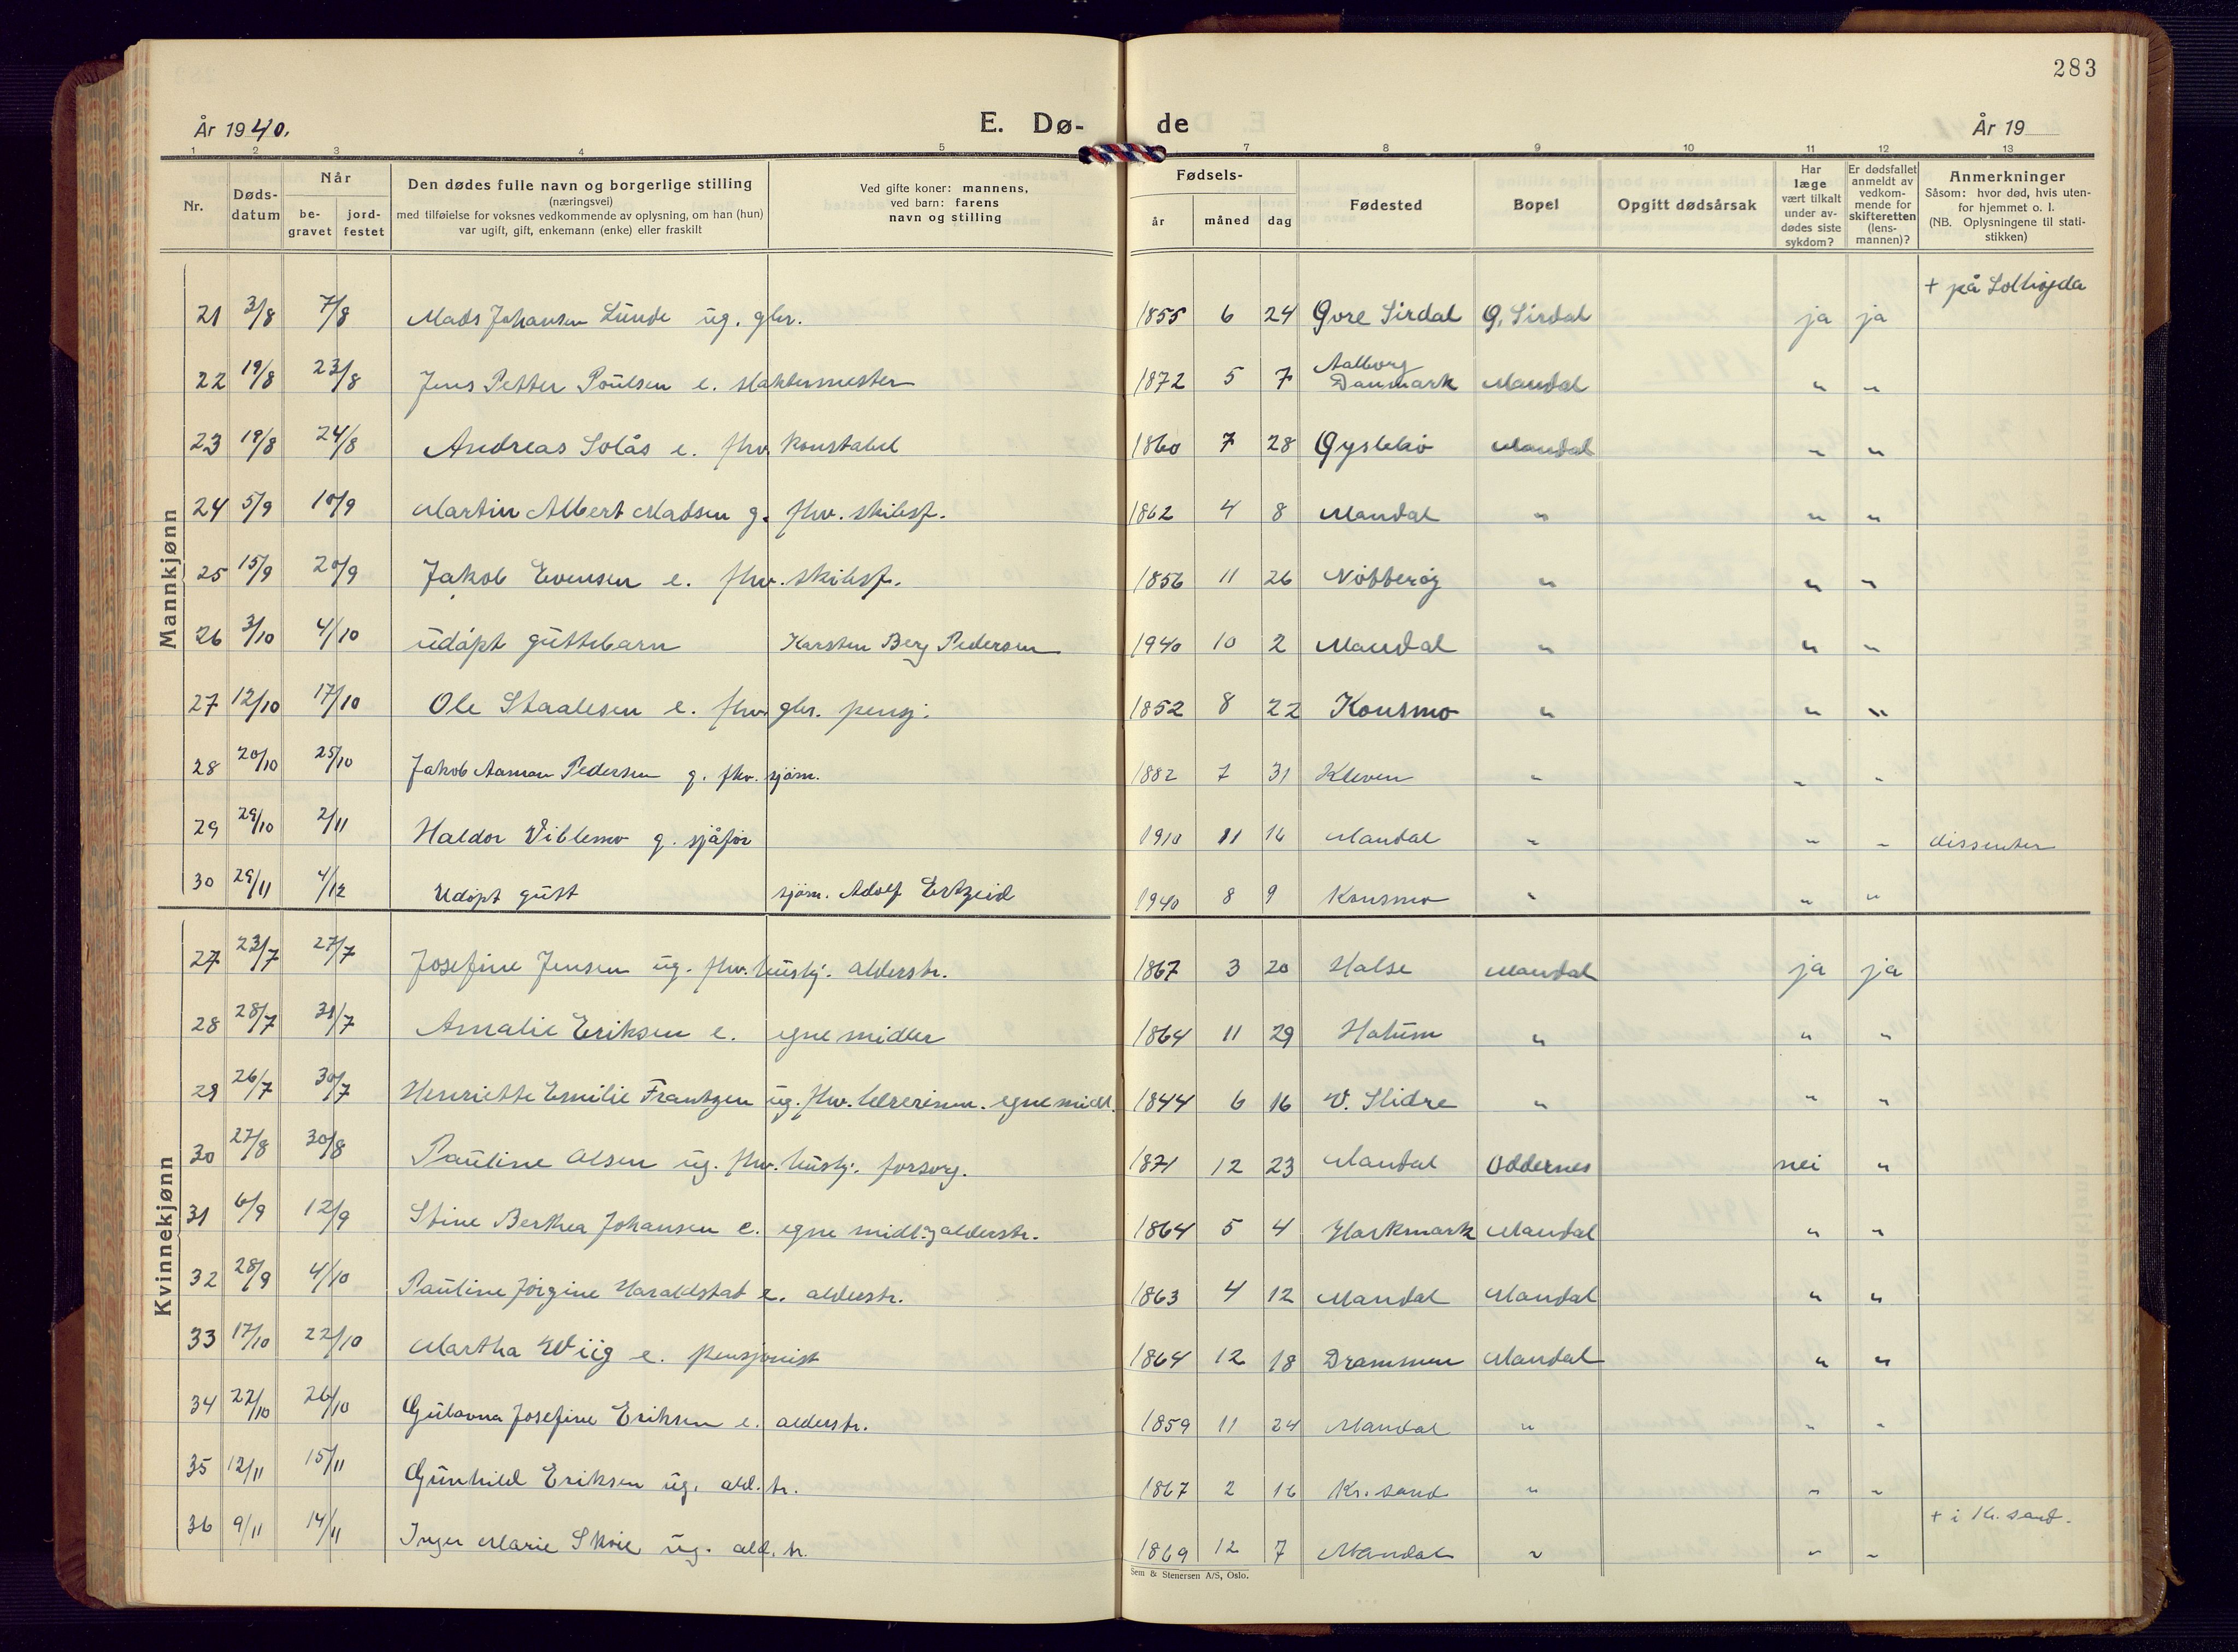 283
År 1940. E. Dø- de År 19
1 2 3 4 5 7 8 9 10 11 12 13
Nr. Døds-datum Når be-gravet jord-festet Den dødes fulle navn og borgerlige stilling (næringsvei) med tilføielse for voksnes vedkommende av oplysning, om han (hun) var ugift, gift, enkemann (enke) eller fraskilt Ved gifte koner: mannens, ved barn: farens navn og stilling Fødsels- år måned dag Fødested Bopel Opgitt dødsårsak Har læge vært tilkalt under av-dødes siste sykdom? Er dødsfallet anmeldt av vedkom-mende for skifteretten (lens-mannen)? Anmerkninger Såsom: hvor død, hvis uten-for hjemmet o. l. (NB. Oplysningene til stati-stikken)
Mannkjønn
21 3/8 7/8 Mads Johansen Lunde ug. gbr. 1855 6 24 Øvre Sirdal Ø. Sirdal ja ja + på Solhøgda
22 19/8 23/8 Jens Petter Poulsen e. slaktermester 1872 5 7 Aalborg Danmark Mandal " "
23 19/8 24/8 Andreas Solås e. fhv. konstabel 1860 7 28 Øyslebø Mandal " "
24 5/9 10/9 Martin Albert Madsen g. fhv. skibsf. 1862 4 8 Mandal " " "
25 15/9 20/9 Jakob Evensen e. fhv. skibsf. 1856 11 26 Nøtterøy " " "
26 3/10 4/10 udøpt guttebarn Karsten Berg Pedersen 1940 10 2 Mandal " " "
27 12/10 17/10 Ole Staalesen e. fhv. gbr. pensj. 1852 8 22 Konsmo " " "
28 20/10 25/10 Jakob Aaman Pedersen g. fhv. sjøm. 1882 7 31 Kleven " " "
29 29/10 2/11 Haldor Viblemo g. sjåfør 1910 11 16 Mandal " " " dissenter
30 29/11 4/12 Udøpt gutt sjøm. Adolf Ertzeid 1940 8 9 Konsmo " " "
Kvinnekjønn
27 23/7 27/7 Josefine Jensen ug. fhv. hushj. alderstr. 1867 3 20 Halse Mandal ja ja
28 28/7 31/7 Amalie Eriksen e. egne midler 1864 11 29 Holum " " "
29 26/7 30/7 Henriette Emilie Frantzen ug. fhv. lærerinne. egne midl. 1844 6 16 V. Slidre " " "
30 27/8 30/8 Pauline Olsen ug. fhv. hushj. forsorg. 1871 12 23 Mandal Oddernes nei "
31 6/9 12/9 Stine Berthea Johansen e. egne midl. og alderstr. 1864 5 4 Harkmark Mandal " "
32 28/9 4/10 Pauline Jørgine Haraldstad e. alderstr. 1863 4 12 Mandal Mandal " "
33 17/10 22/10 Martha Wiig e. pensjonist 1864 12 18 Drammen Mandal " "
34 22/10 26/10 Gulovna Josefine Eriksen e. alderstr. 1859 11 24 Mandal " " "
35 12/11 15/11 Gunhild Eriksen ug. ald. tr. 1867 2 16 Kr.sand " " "
36 9/11 14/11 Inger Marie Skoie ug. ald. tr. 1869 12 7 Mandal " " " + i Kr. sand.
Sem & Stenersen A/S, Oslo.